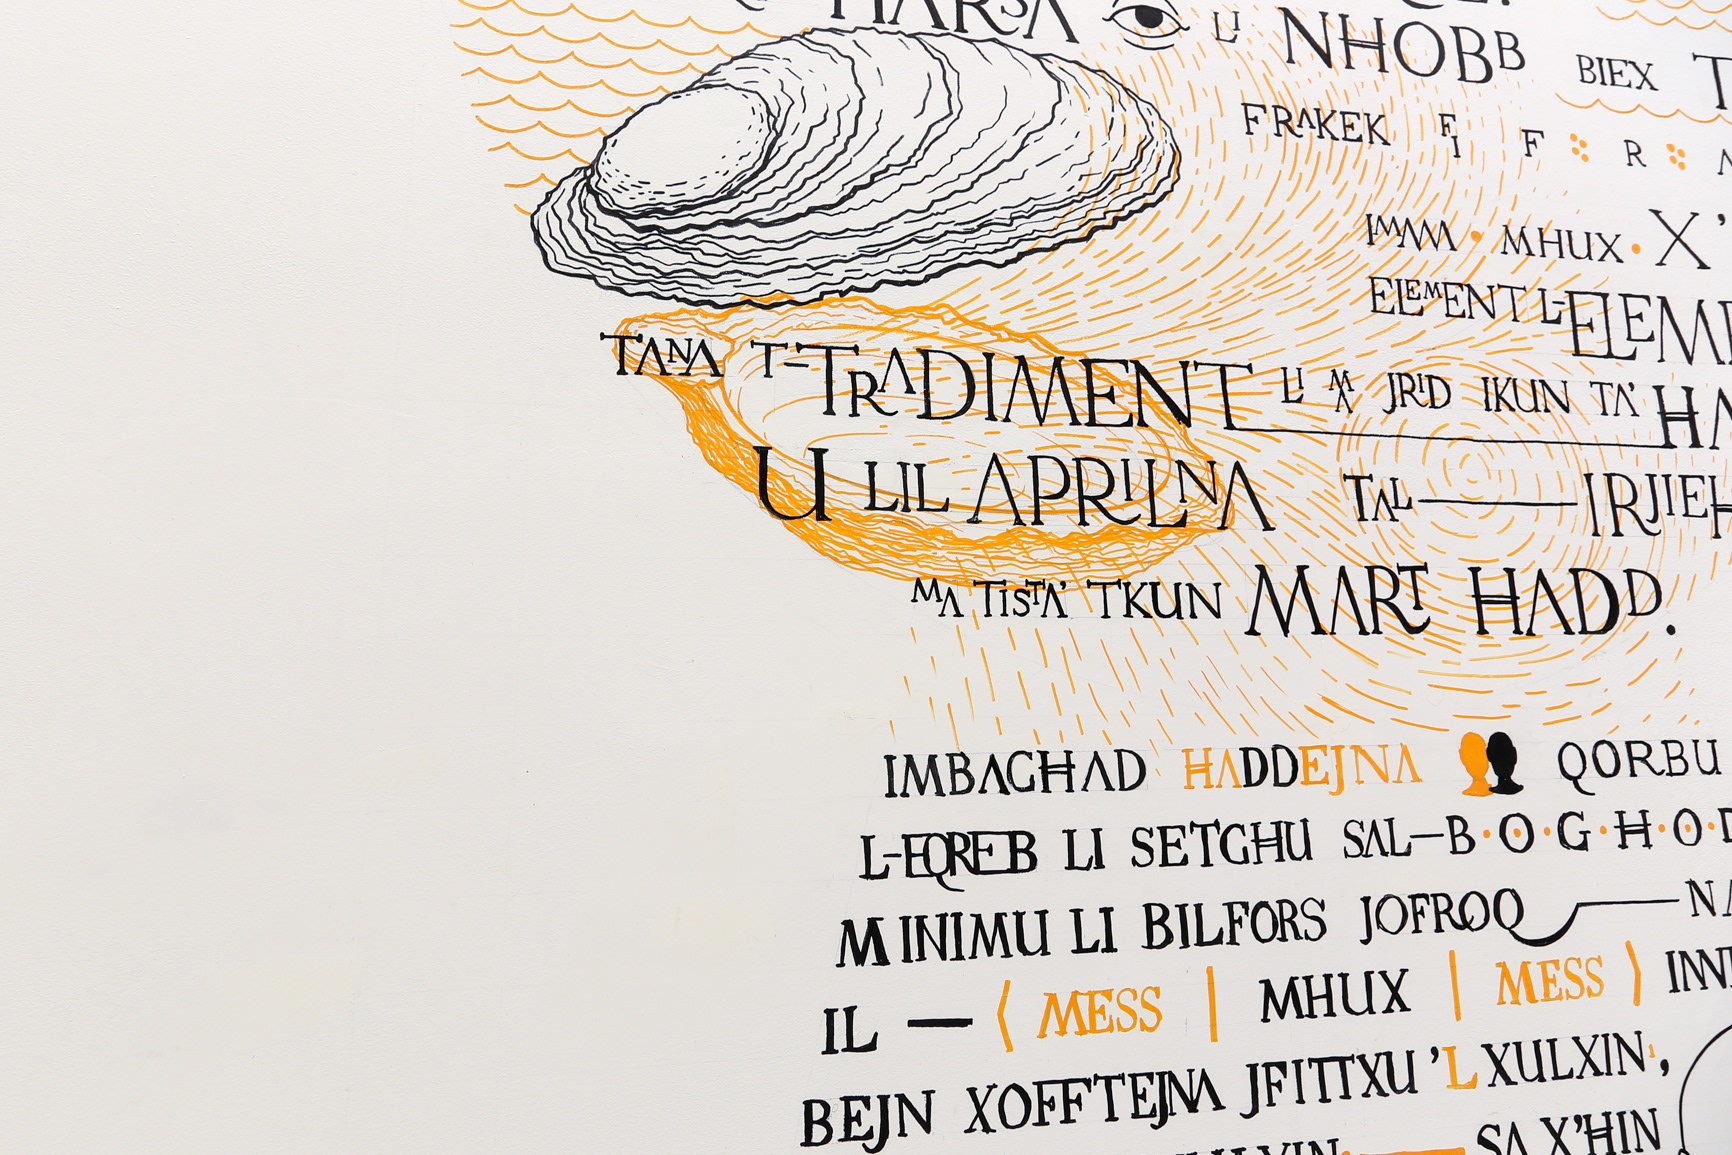 ĦARSA LI NĦOBB BIEX
FRAKEK FI F R
IMMA MHUX X'
ELEMENT L-ELEM
TANA T-TRADIMENT LI MA JRID IKUN TA' ĦA
U LIL APRILNA TAL IRJIEĦ
MA TISTA' TKUN MART ĦADD.
IMBAGĦAD ĦADDEJNA QORBU
L-EQREB LI SETGĦU SAL-B·O·G·Ħ·O·D
MINIMU LI BILFORS JOFROQ NA
IL — ⟨ MESS | MHUX | MESS ⟩ INNI
BEJN XOFFTEJNA JFITTXU 'L XULXIN,
ULXIN SA X'ĦIN